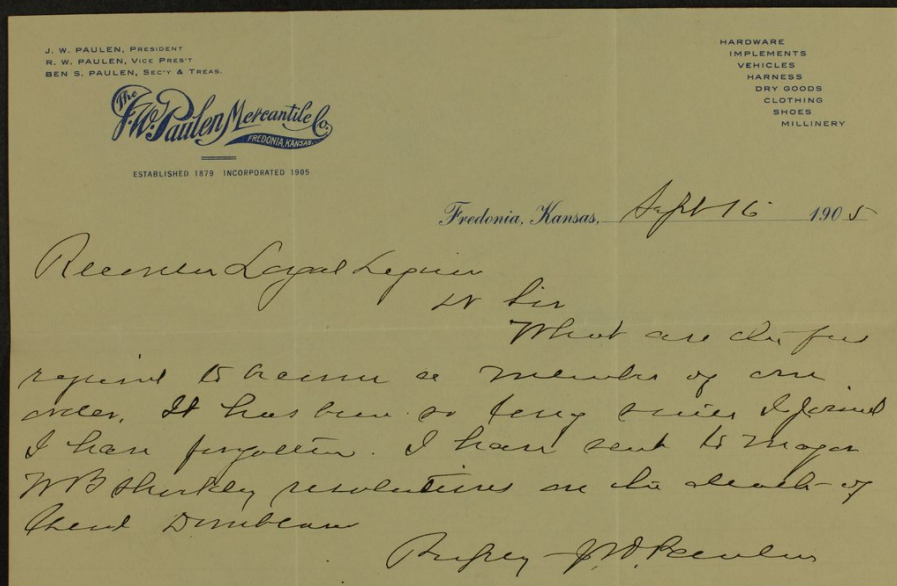 J. W. PAULEN, PRESIDENT
R. W. PAULEN, VICE PRES'T
BEN S. PAULEN, SEC'Y & TREAS.
The J.W. Paulen Mercantile Co.
FREDONIA, KANSAS.
ESTABLISHED 1879 INCORPORATED 1905
HARDWARE
IMPLEMENTS
VEHICLES
HARNESS
DRY GOODS
CLOTHING
SHOES
MILLINERY
Fredonia, Kansas, Sept 16 1905
Recorder Loyal Legion
Dr Sir
What are the fees
required to become a member of our
order. It has been so long since I joined
I have forgotten. I have sent to Major
W B Shockley resolutions on the death of
J. W. Paulen